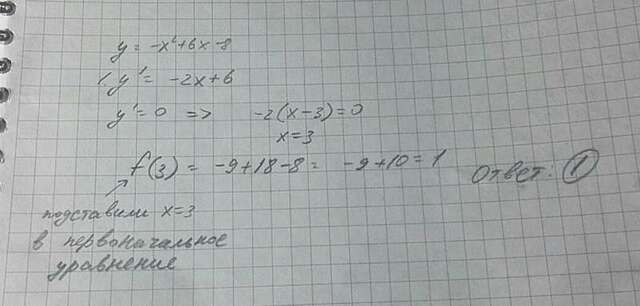 y = -x²+6x-8
( y' = -2x+6
y'=0 => -2(x-3)=0
x=3
f(3) = -9+18-8 = -9+10=1 Ответ: 1
подставили x=3
в первоначальное
уравнение